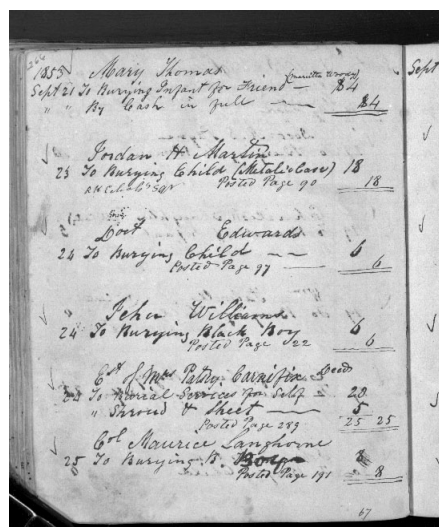 1853 Mary Thomas
Sept 21 To Burying Infant for Friend — $4
" " By Cash in full — $4
Sept
Jordan H. Martin
23 To Burying Child (Metalic Case) 18
Posted Page 90 18
Doct Edwards
24 To Burying Child — 6
Posted Page 97 — 6
Jehu Williams
24 To Burying Black Boy 6
Posted Page 22 6
Est of Mrs Patsy Carnifix Deed
24 To Burial Services for Self 20
" Shroud & Sheet — 5
Posted Page 289 25 25
Col Maurice Langhorne
25 To Burying B. Boy 8
Posted Page 191 8
67